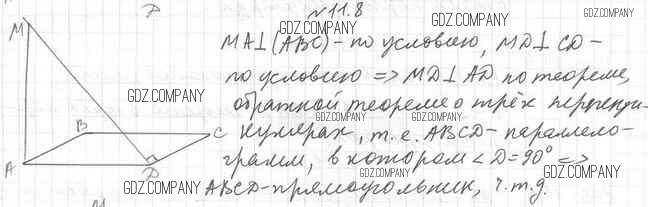 №11.8
GDZ.COMPANY
GDZ.COMPANY
M
MA⊥(ABC) - по условию, MD⊥CD -
по условию => MD⊥AD по теореме,
GDZ.COMPANY
GDZ.COMPANY
обратной теореме о трёх перпенди-
GDZ.COMPANY
GDZ.COMPANY
B
C
кулярах, т.е. ABCD - параллело-
A
D
грамм, в котором <D=90° =>
GDZ.COMPANY
GDZ.COMPANY
ABCD - прямоугольник, ч.т.д.